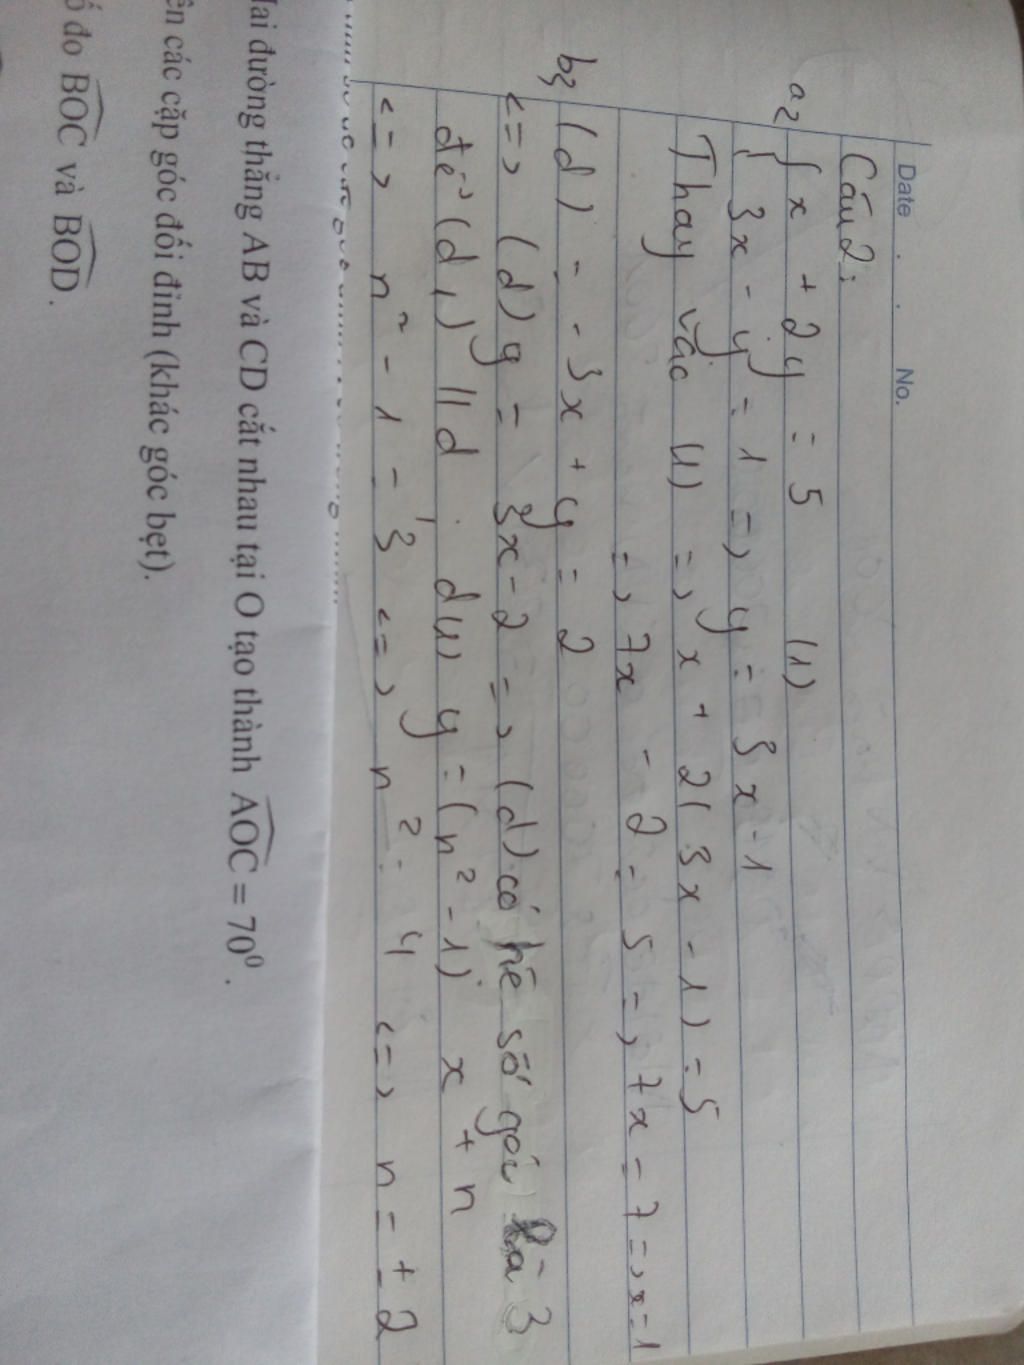 Date . . No.
Câu 2:
a, { x + 2y = 5 (1)
{ 3x - y = 1 => y = 3x - 1
Thay vào (1) => x + 2(3x - 1) = 5
=> 7x - 2 = 5 => 7x = 7 => x = 1
b, (d) = -3x + y = 2
<=> (d) y = 3x - 2 => (d) có hệ số góc là 3
để (d1) // d . d(1) y = (n² - 1) x + n
<=> n² - 1 = 3 <=> n² = 4 <=> n = ± 2
Hai đường thẳng AB và CD cắt nhau tại O tạo thành AOC = 70⁰.
ên các cặp góc đối đỉnh (khác góc bẹt).
ố đo BOC và BOD.